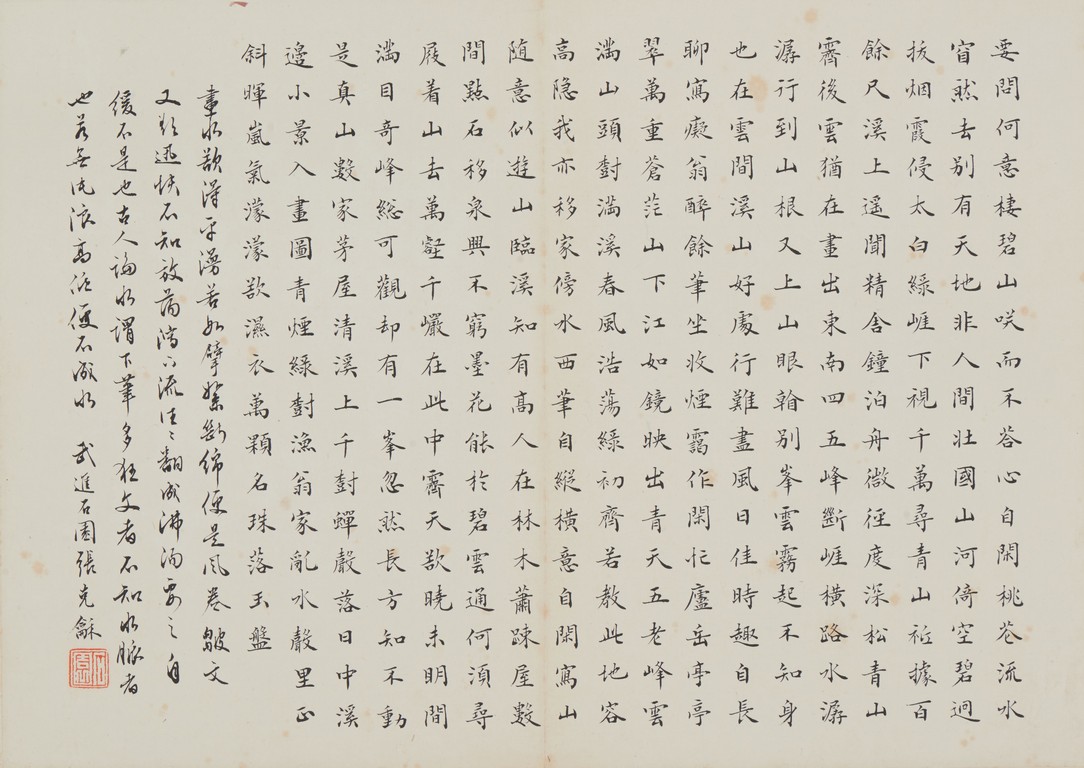 要問何意棲碧山咲而不荅心自閑桃花流水
窅然去别有天地非人間壮國山河倚空碧迥
拔烟霞侵太白綠崕下視千萬尋青山秪據百
餘尺溪上遥聞精舍鐘泊舟微徑度深松青山
霽後雲猶在畫出東南四五峰斷崕橫路水潺
潺行到山根又上山眼翰别峯雲霧起不知身
也在雲間溪山好處行難盡風日佳時趣自長
聊寫癡翁醉餘筆坐收煙靄作閑忙廬岳亭亭
翠萬重蒼茫山下江如鏡映出青天五老峰雲
满山頭尌满溪春風浩蕩綠初齊若教此地容
高隐我亦移家傍水西筆自縱橫意自閑寫山
随意似遊山臨溪知有高人在林木蕭踈屋數
間點石移泉興不窮墨花能於碧雲通何須尋
屐着山去萬壑千巖在此中霽天欲曉未明間
满目奇峰總可觀却有一峯忽然長方知不動
是真山數家茅屋清溪上千尌蟬聲落日中溪
邊小景入畫圖青煙綠尌漁翁家亂水聲里正
斜暉嵐氣濛濛欲濕衣萬顆名珠落玉盤
畫水欲得平若如擘絮斷綿便是風卷皺文
又迅快不知放蕩下流注〻翻成沸洶要之自
緩不是也古人論水謂下筆多狂文者不知水脉者
也若無高低便不成水 武進石園張克龢
石園